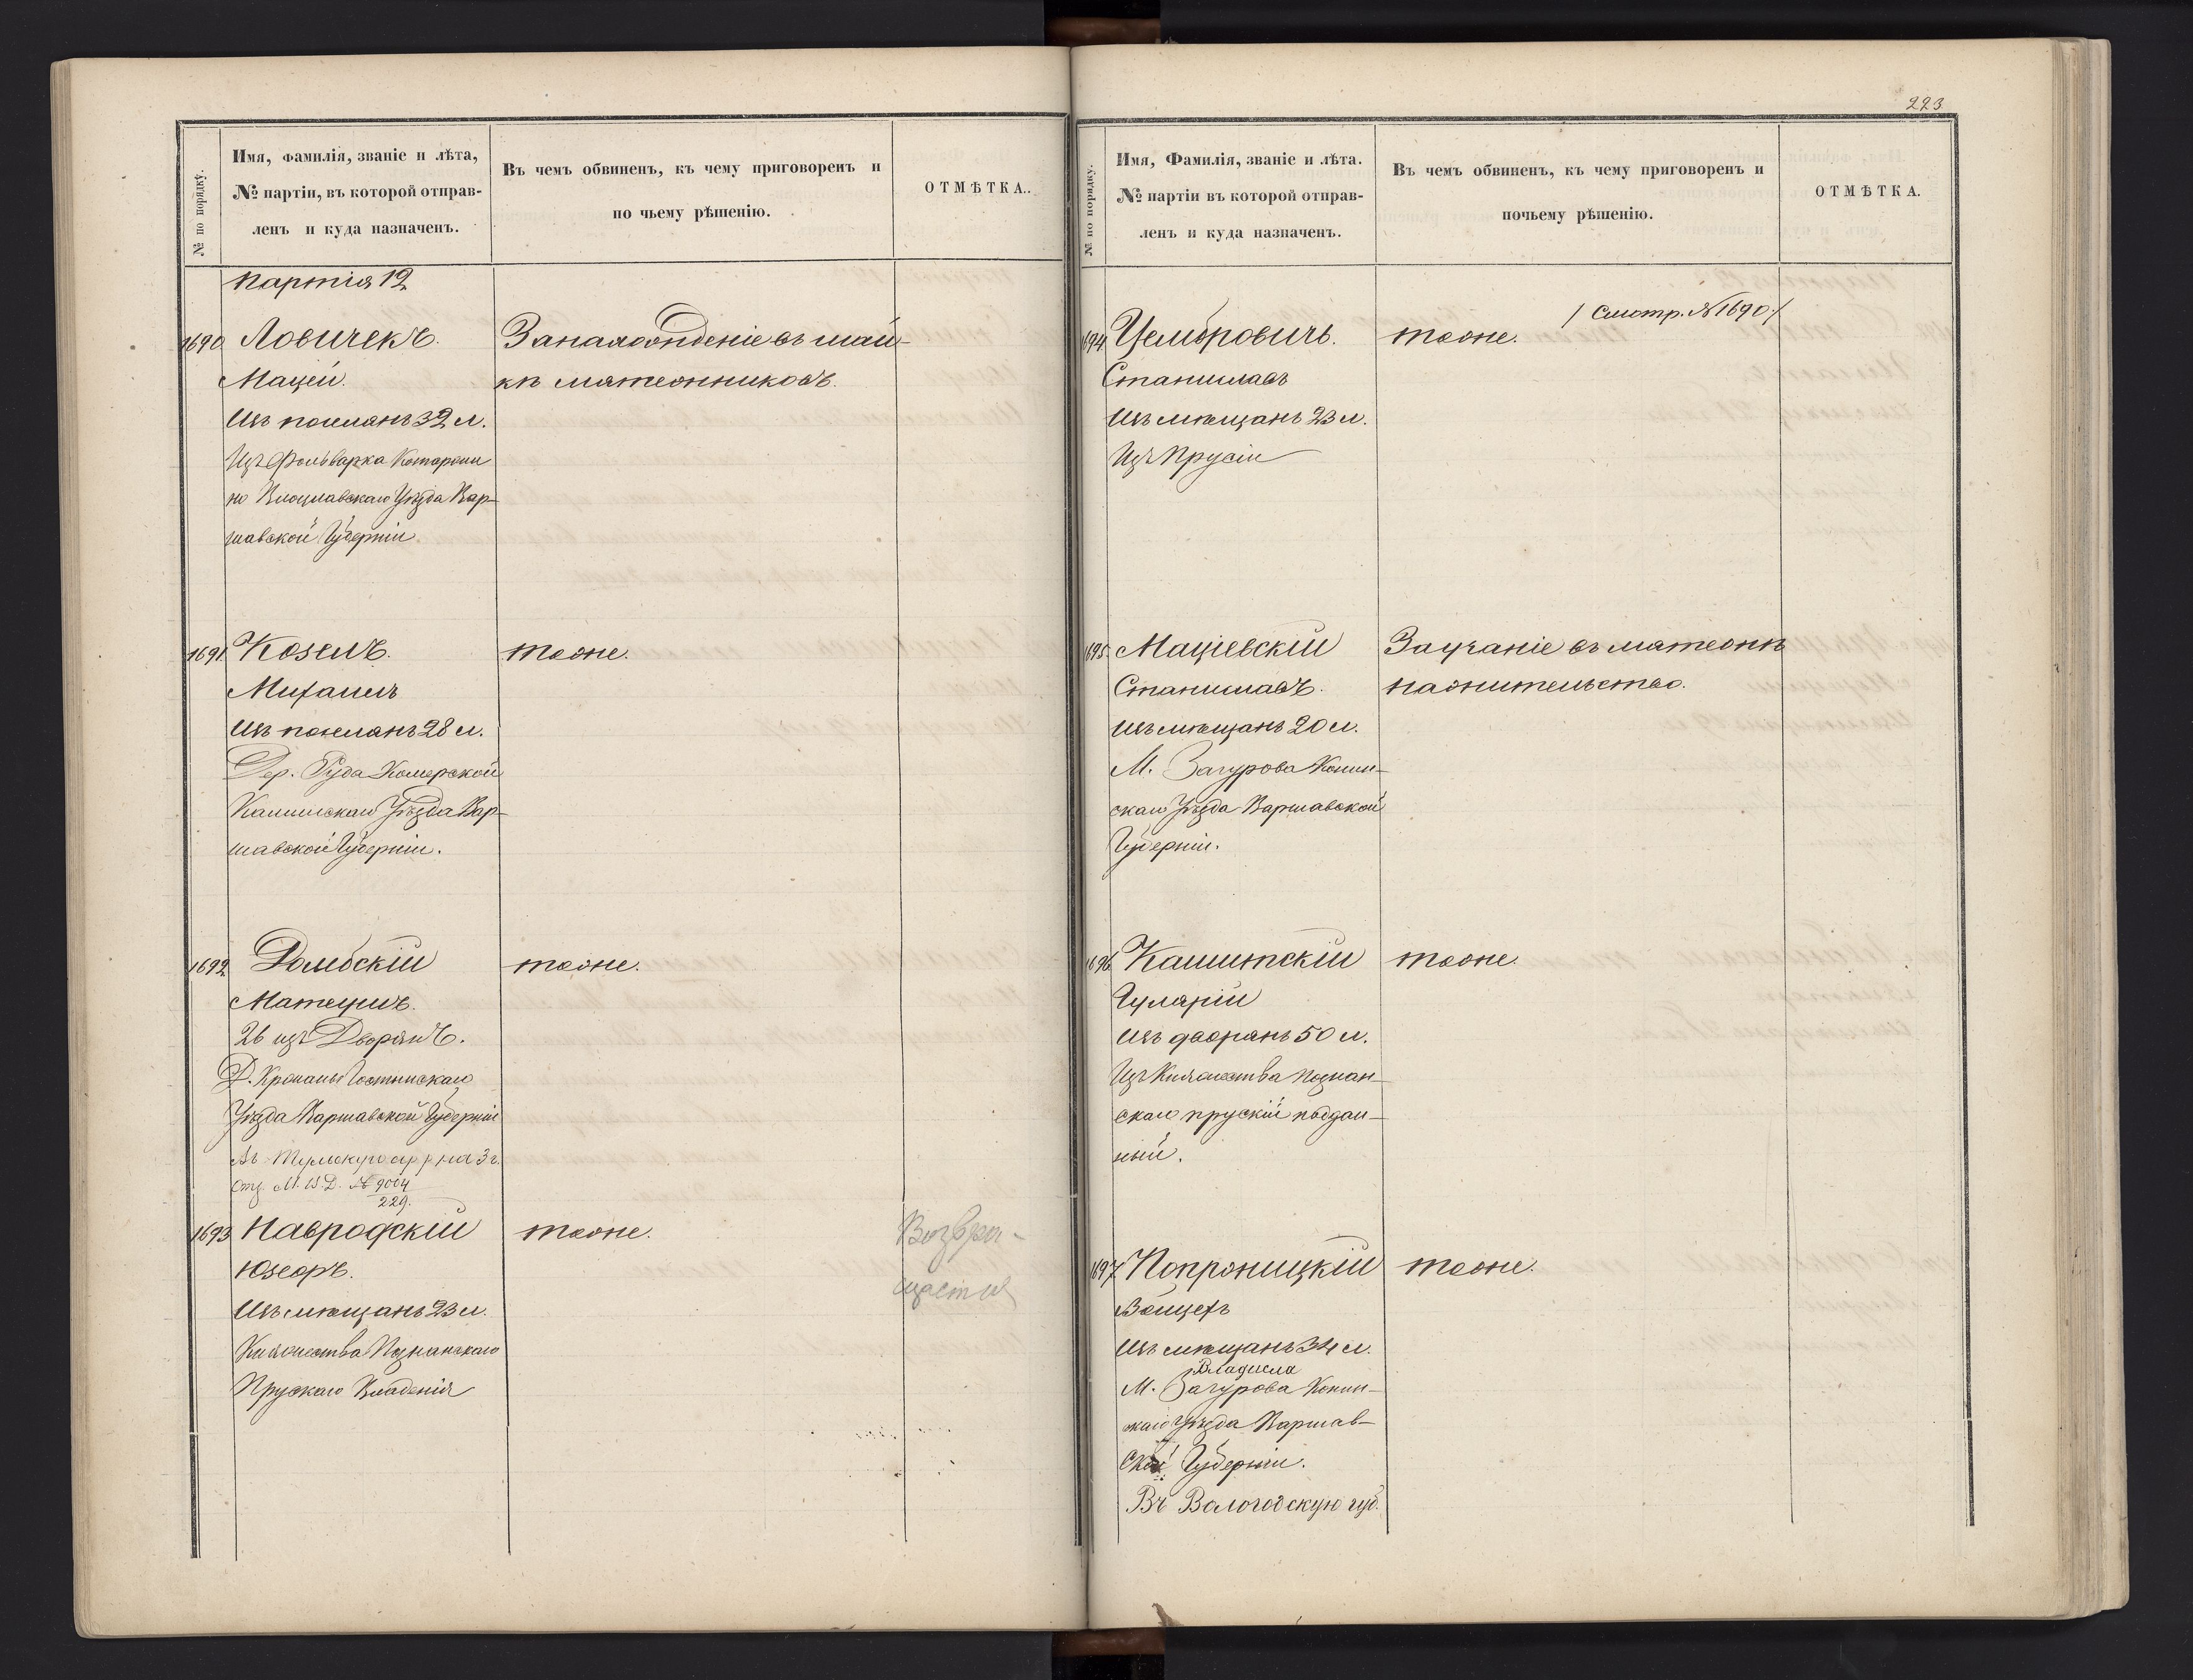 № по порядку.
Имя, фамилія, званіе и лѣта,
№ партіи, въ которой отправ-
ленъ и куда назначенъ.
Въ чемъ обвиненъ, къ чему приговоренъ и
по чьему рѣшенію.
ОТМѢТКА.
Партія 12
1690 Ловичекъ.
Мацей.
Изъ поселянъ 32 л.
Изъ Фольварка
Влоцлавскаго Уѣзда Вар-
шавской Губерніи
За нахожденіе въ шай-
кѣ мятежниковъ.
1691 Козелъ.
Михаилъ
Изъ поселянъ 28 л.
Дер. Руда
Калишскаго Уѣзда Вар-
шавской Губерніи.
тоже.
1692 Домбскій
Матеушъ.
26 изъ Дворянъ.
Д. Гостинскаго
Уѣзда Варшавской Губерніи
на 3 г.
М. В. Д. № 9004
229.
тоже.
1693 Навродскій
Юзефъ.
Изъ мѣщанъ 23 л.
Княжества Познанскаго
Прускаго Владенія
тоже.
Возвра-
щается
223
№ по порядку.
Имя, Фамилія, званіе и лѣта.
№ партіи въ которой отправ-
ленъ и куда назначенъ.
Въ чемъ обвиненъ, къ чему приговоренъ и
почьему рѣшенію.
ОТМѢТКА.
1694 Цембровичъ.
Станиславъ
Изъ мѣщанъ 23 л.
Изъ Прусіи
тоже.
/ Смотр. № 1690 /
1695 Маціевскій
Станиславъ.
Изъ мѣщанъ 20 л.
М. Загурова Конин-
скаго Уѣзда Варшавской
Губерніи.
За участіе въ мятежѣ
на жительство.
1696 Кашитскій
Изъ дворянъ 50 л.
Изъ Княжества Познан-
скаго прускій поддан-
ный.
тоже.
1697 Попроницкій
Войцехъ
Изъ мѣщанъ 34 л.
М. Загурова Конин-
скаго Уѣзда Варшав-
ской Губерніи.
Въ Вологодскую губ.
тоже.